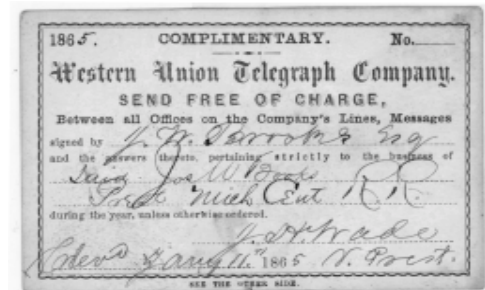 1865. COMPLIMENTARY. No.
Western Union Telegraph Company.
SEND FREE OF CHARGE,
Between all Offices on the Company's Lines, Messages
signed by J. W. Brooks Esq
and the answers thereto, pertaining strictly to the business of
Said Jos W Books
Prest Mich Cent R. R.
during the year, unless otherwise ordered.
J. H. Wade
Clevd Jany 11th 1865 V. Prest.
SEE THE OTHER SIDE.